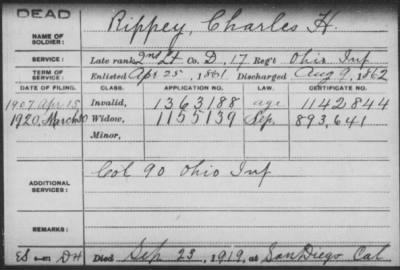 DEAD
NAME OF SOLDIER: Rippey, Charles H.
SERVICE: Late rank 2nd Lt Co. D, 17 Reg't Ohio Inf
TERM OF SERVICE: Enlisted Apr 25, 1861 Discharged Aug 9, 1862
DATE OF FILING. CLASS. APPLICATION NO. LAW. CERTIFICATE NO.
1907 Apr. 15 Invalid, 1363188 age 1142844
1920, March 30 Widow, 1155139 Sep. 893,641
Minor,
ADDITIONAL SERVICES: Col 90 Ohio Inf
REMARKS:
Died Sep 23, 1919, at San Diego Cal